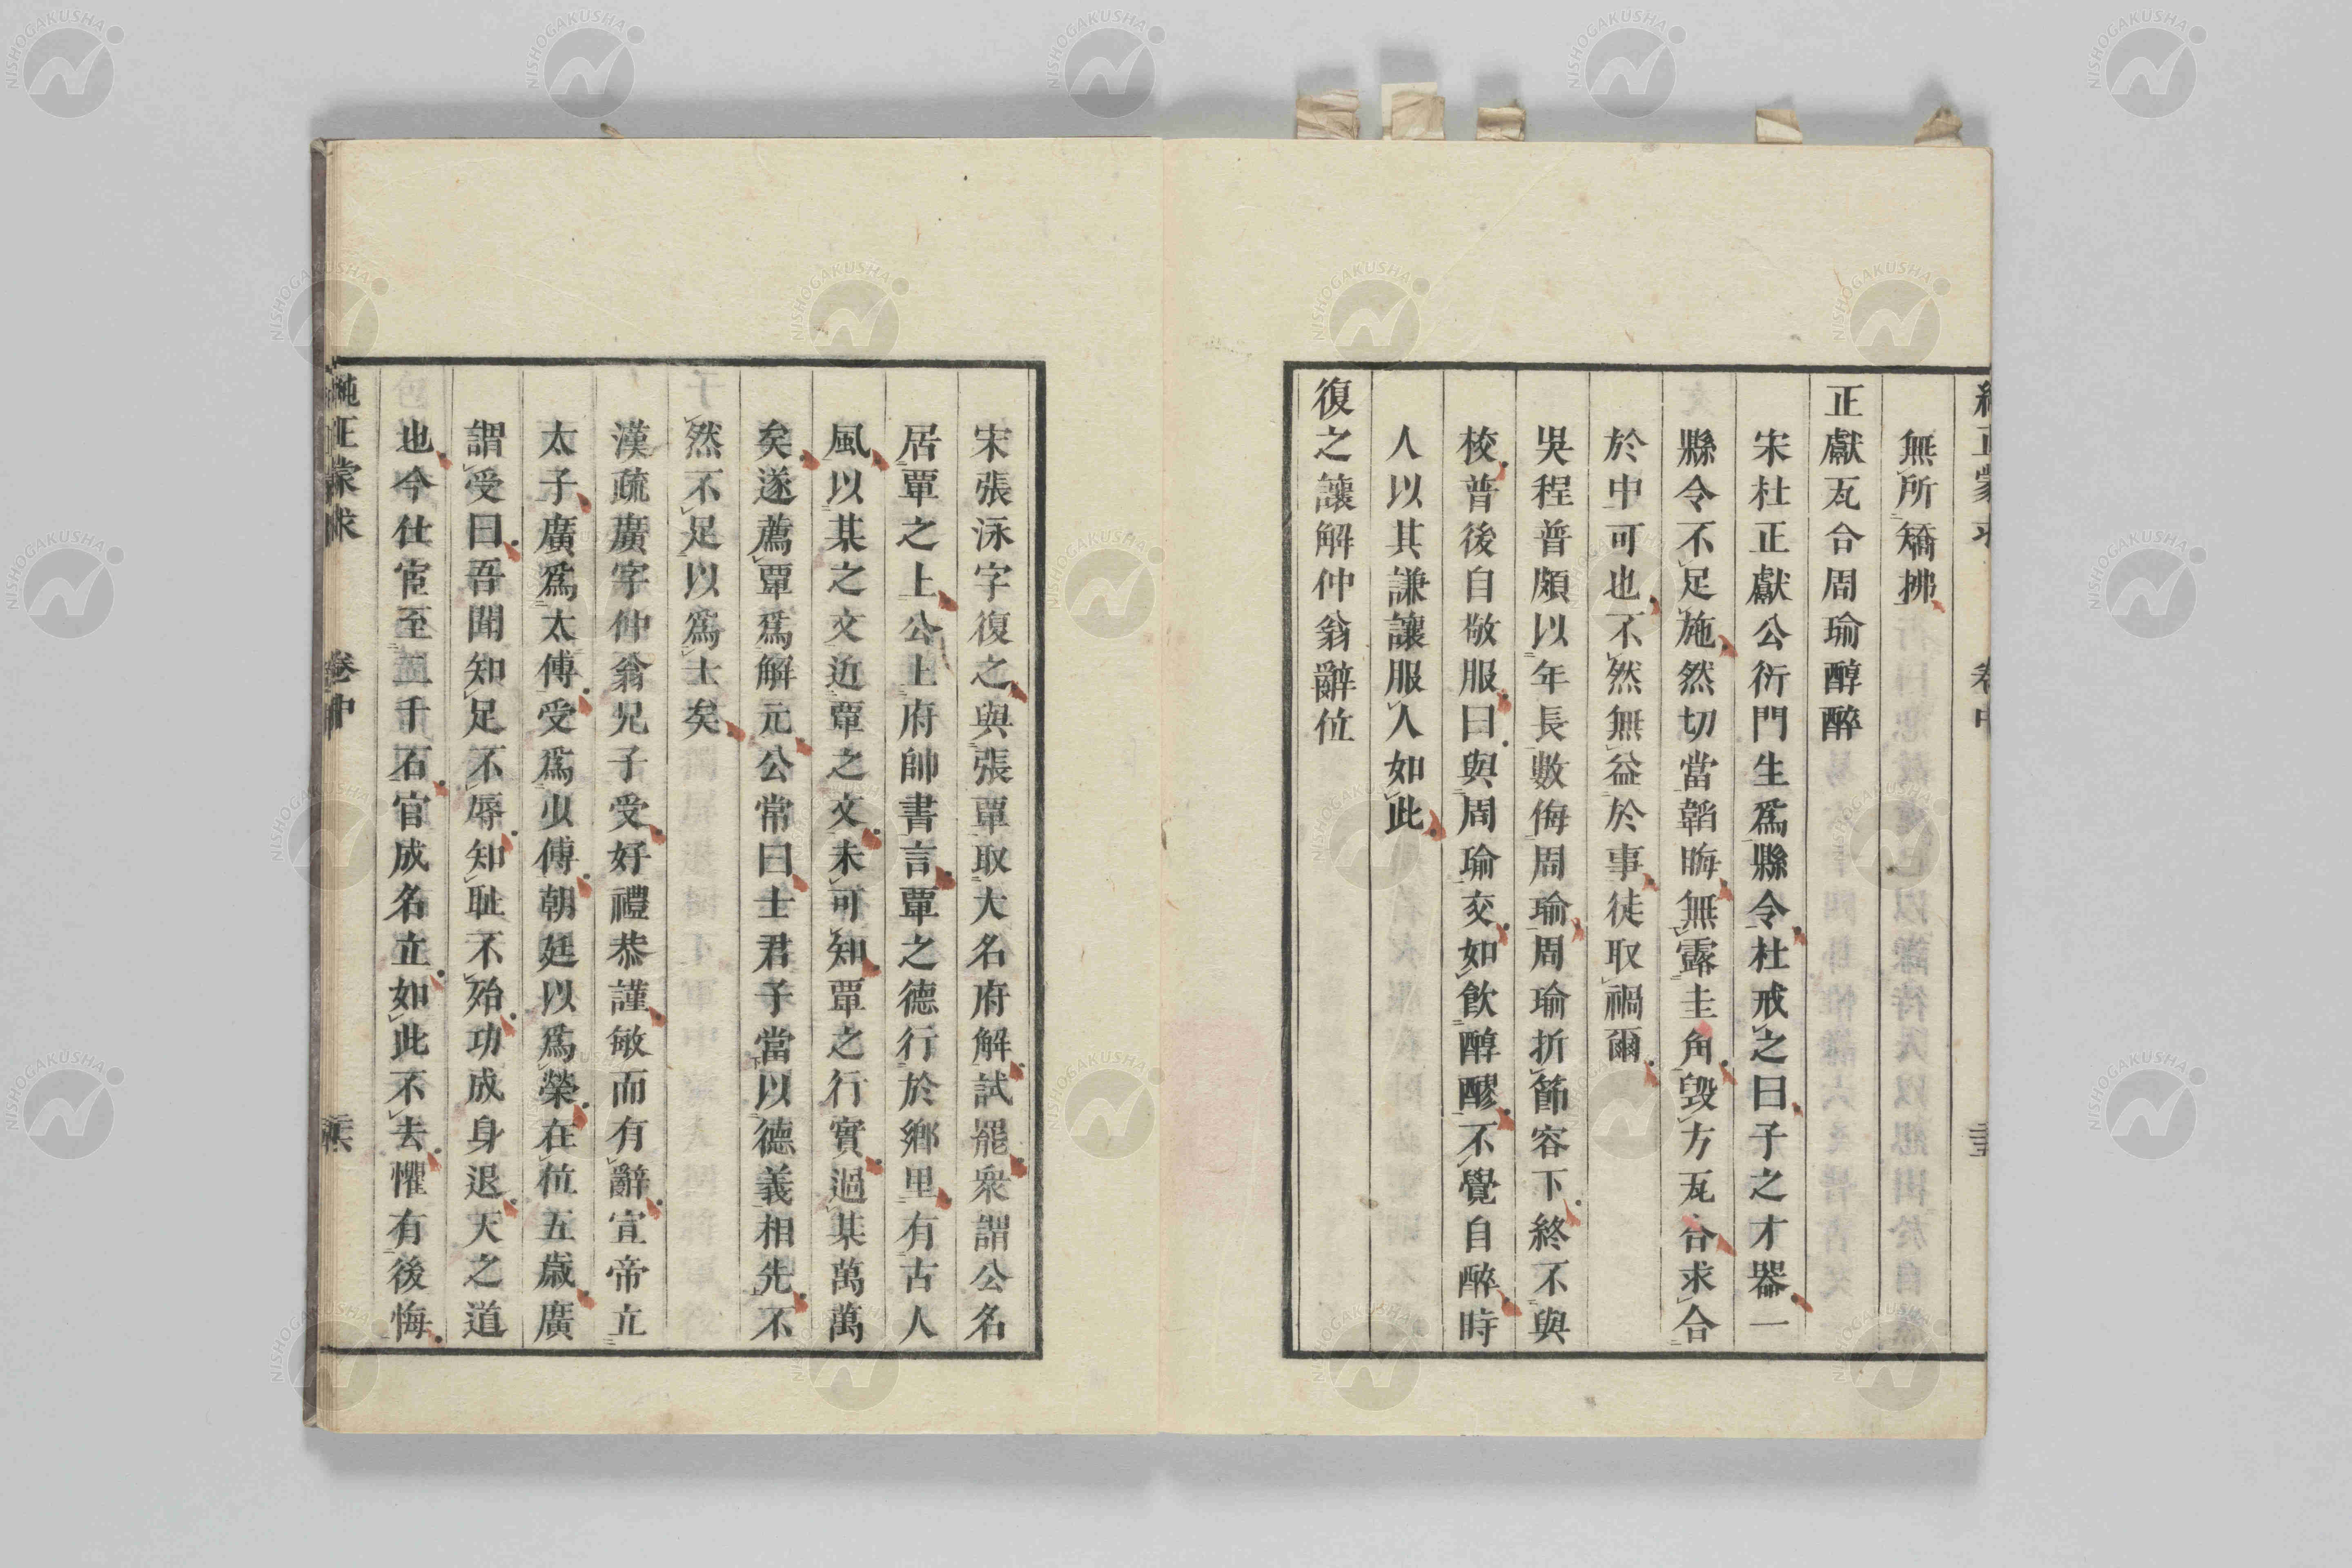 無所矯拂
正獻瓦合周瑜醇醉
宋杜正獻公衍門生爲縣令杜戒之曰子之才器一
縣令不足施然切當韜晦無露圭角毀方瓦合求合
於中可也不然無益於事徒取禍爾
吳程普頗以年長數侮周瑜周瑜折節容下終不與
校普後自敬服曰與周瑜交如飮醇醪不覺自醉時
人以其謙讓服人如此
復之讓解仲翁辭位
宋張泳字復之與張覃取大名府解試罷衆謂公名
居覃之上公上府帥書言覃之德行於鄉里有古人
風以某之文近覃之文未可知覃之行實過某萬萬
矣遂薦覃爲解元公常曰士君子當以德義相先不
然不足以爲士矣
漢疏廣字仲翁兄子受好禮恭謹敏而有辭宣帝立
太子廣爲太傅受爲少傅朝廷以爲榮在位五歲廣
謂受曰吾聞知足不辱知耻不殆功成身退天之道
也今仕宦至二千石官成名立如此不去懼有後悔
純正蒙求 卷中
NISHOGAKUSHA